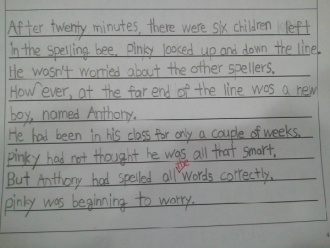 After twenty minutes, there were six children left
in the spelling bee. Pinky looked up and down the line.
He wasn't worried about the other spellers.
How ever, at the far end of the line was a new
boy, named Anthony.
He had been in his class for only a couple of weeks.
Pinky had not thought he was all that smart.
But Anthony had spelled all words correctly.
Pinky was beginning to worry.